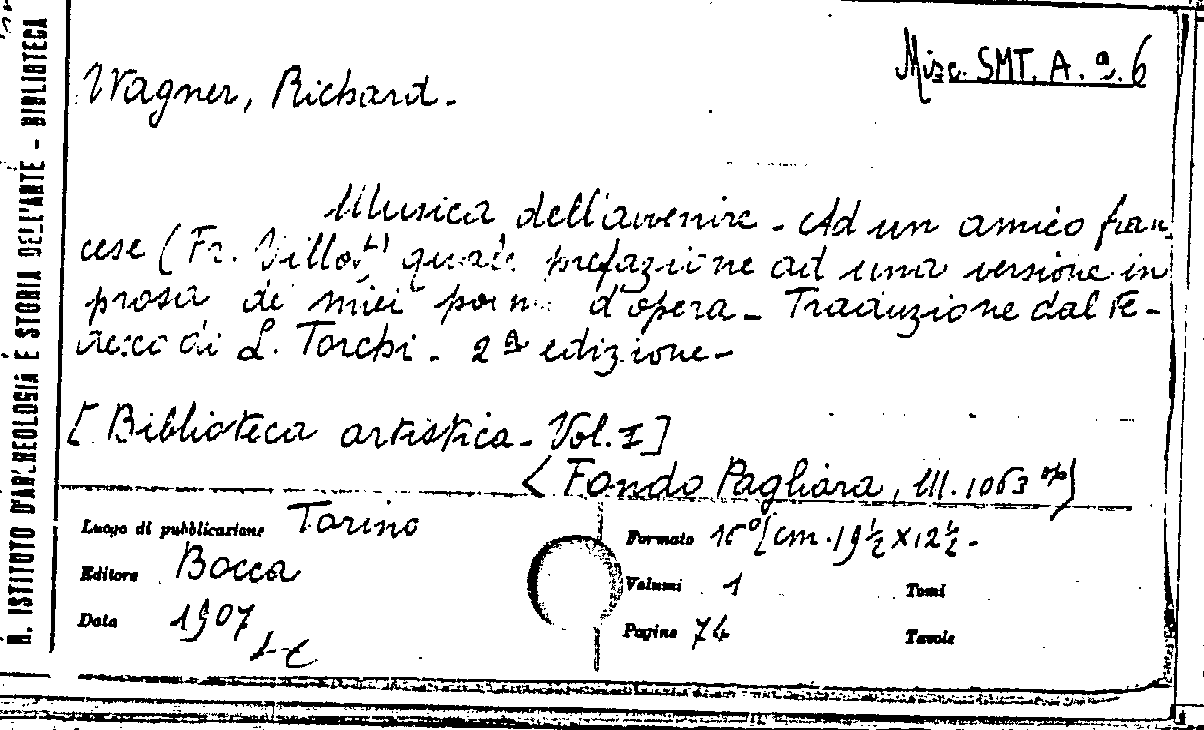 R. ISTITUTO D'ARCHEOLOGIA E STORIA DELL'ARTE - BIBLIOTECA
Misc. SMT. A. a. 6
Wagner, Richard.
Musica dell'avvenire. Ad un amico fran
cese (Fr. Villot) quale prefazione ad una versione in
prosa de' miei poemi d'opera. Traduzione dal te-
desco di L. Torchi. 2ª edizione.
[Biblioteca artistica. Vol. I]
(Fondo Pagliara, III. 1063
Luogo di pubblicazione Torino
Formato 16° (cm. 19½ x 12½.
Editore Bocca
Volumi 1 Tomi
Data 1907
Pagine 74 Tavole